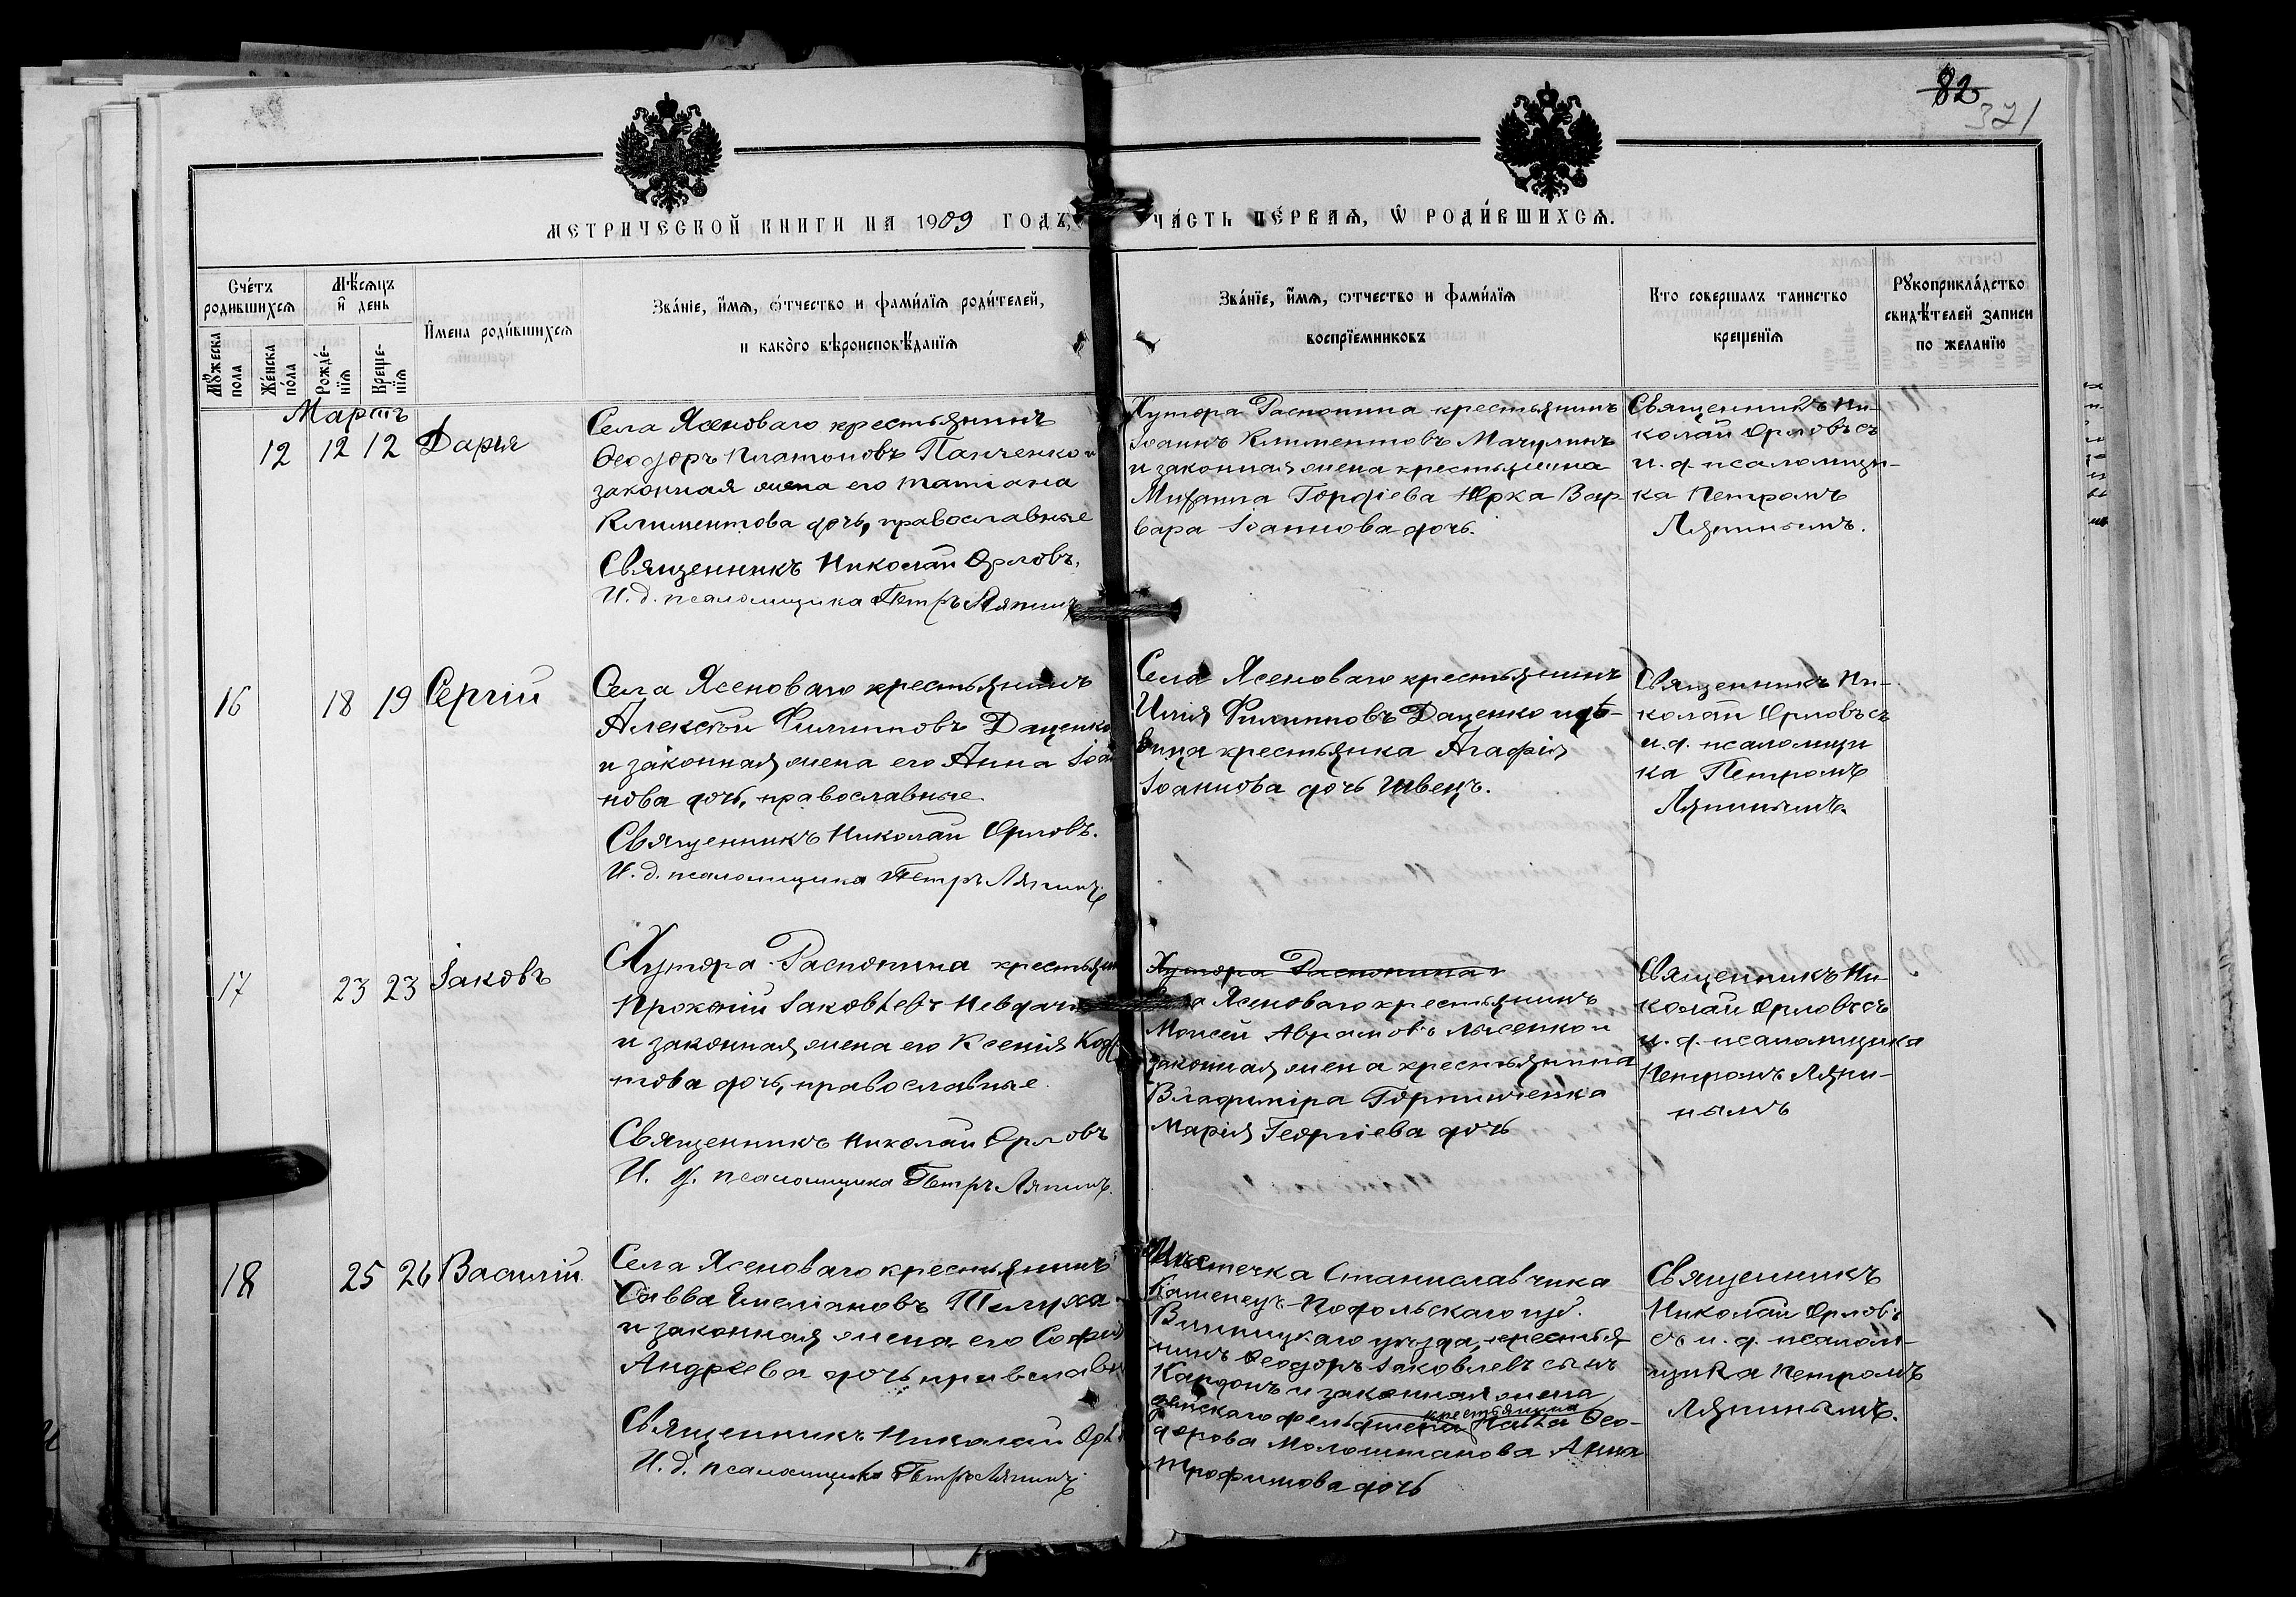 82
371
МЕТРИЧЕСКОЙ КНИГИ НА 1909 ГОДЪ,
ЧА́СТЬ ПЕ́РВАѦ, Ѡ҆ РОДИ́ВШИХСѦ.
Сче́тъ родившихсѧ
Мꙋжеска пола
Же́нска по́ла
Мѣ́сѧцъ и҆ день
Рожде́нїѧ
Креще́нїѧ
И҆мена роди́вшихсѧ
Зва́нїе, и҆́мѧ, ѻ҆́тчество и фами́лїѧ роди́телей,
и како́го вѣроисповѣ́данїѧ
Зва́нїе, и҆́мѧ, ѻтчество и фами́лїѧ
воспрїе́мниковъ
Кто совершалъ таинство
креще́нїѧ
Рꙋкоприкла́дство
свидѣ́телей записи
по желанїю
Мартъ
12 12 12 Дарія
Села Ясеноваго крестьянинъ
Ѳеодоръ Платоновъ Панченко и
законная жена его Татіана
Климентова дочь, православные
Священникъ Николай Орловъ.
И. д. псаломщика Петръ Ляпинъ
Хутора Распопина крестьянинъ
Іоаннъ Климентовъ Мачулинъ
и законная жена крестьянина
Михаила Гордіева Юрка Вар-
вара Іоаннова дочь.
Священникъ Ни-
колай Орловъ съ
и. д. псаломщи-
ка Петромъ
Ляпинымъ.
16 18 19 Сергій
Села Ясеноваго крестьянинъ
Алексѣй Филипповъ Даценко
и законная жена его Анна Іоан
нова дочь, православные
Священникъ Николай Орловъ.
И. д. псаломщика Петръ Ляпинъ.
Села Ясеноваго крестьянинъ
Илія Филипповъ Даценко и дѣ-
вица крестьянка Агафія
Іоаннова дочь Швецъ.
Священникъ Ни-
колай Орловъ съ
и. д. псаломщи
ка Петромъ
Ляпинымъ.
17 23 23 Іаковъ
Хутора Распопина крестьян
Прокопій Іаковлевъ
и законная жена его Ксенія
това дочь, православные.
Священникъ Николай Орловъ
И. д. псаломщика Петръ Ляпинъ.
Хутора Распопина
Села Ясеноваго крестьянинъ
Моисей Аврамовъ Лысенко и
законная жена крестьянина
Владиміра Горпинченка
Марія Георгіева дочь
Священникъ Ни-
колай Орловъ съ
и. д. псаломщика
Петромъ Ляпи-
нымъ
18 25 26 Василій
Села Ясеноваго крестьянинъ
Савва Емеліановъ
и законная жена его Софія
Андреева дочь православн
Священникъ Николай Орл
И. д. псаломщика Петръ Ляпинъ.
Мѣстечка Станиславчика
Каменецъ-Подольскаго губ.
Винницкаго уѣзда, крестья
нинъ Ѳеодоръ Іаковлевъ сынъ
и законная жена
земскаго фельдшера крестьянина Ѳео-
дорова Молоштанова Анна
Трофимова дочь
Священникъ
Николай Орловъ
съ и. д. псалом-
щика Петромъ
Ляпинымъ.